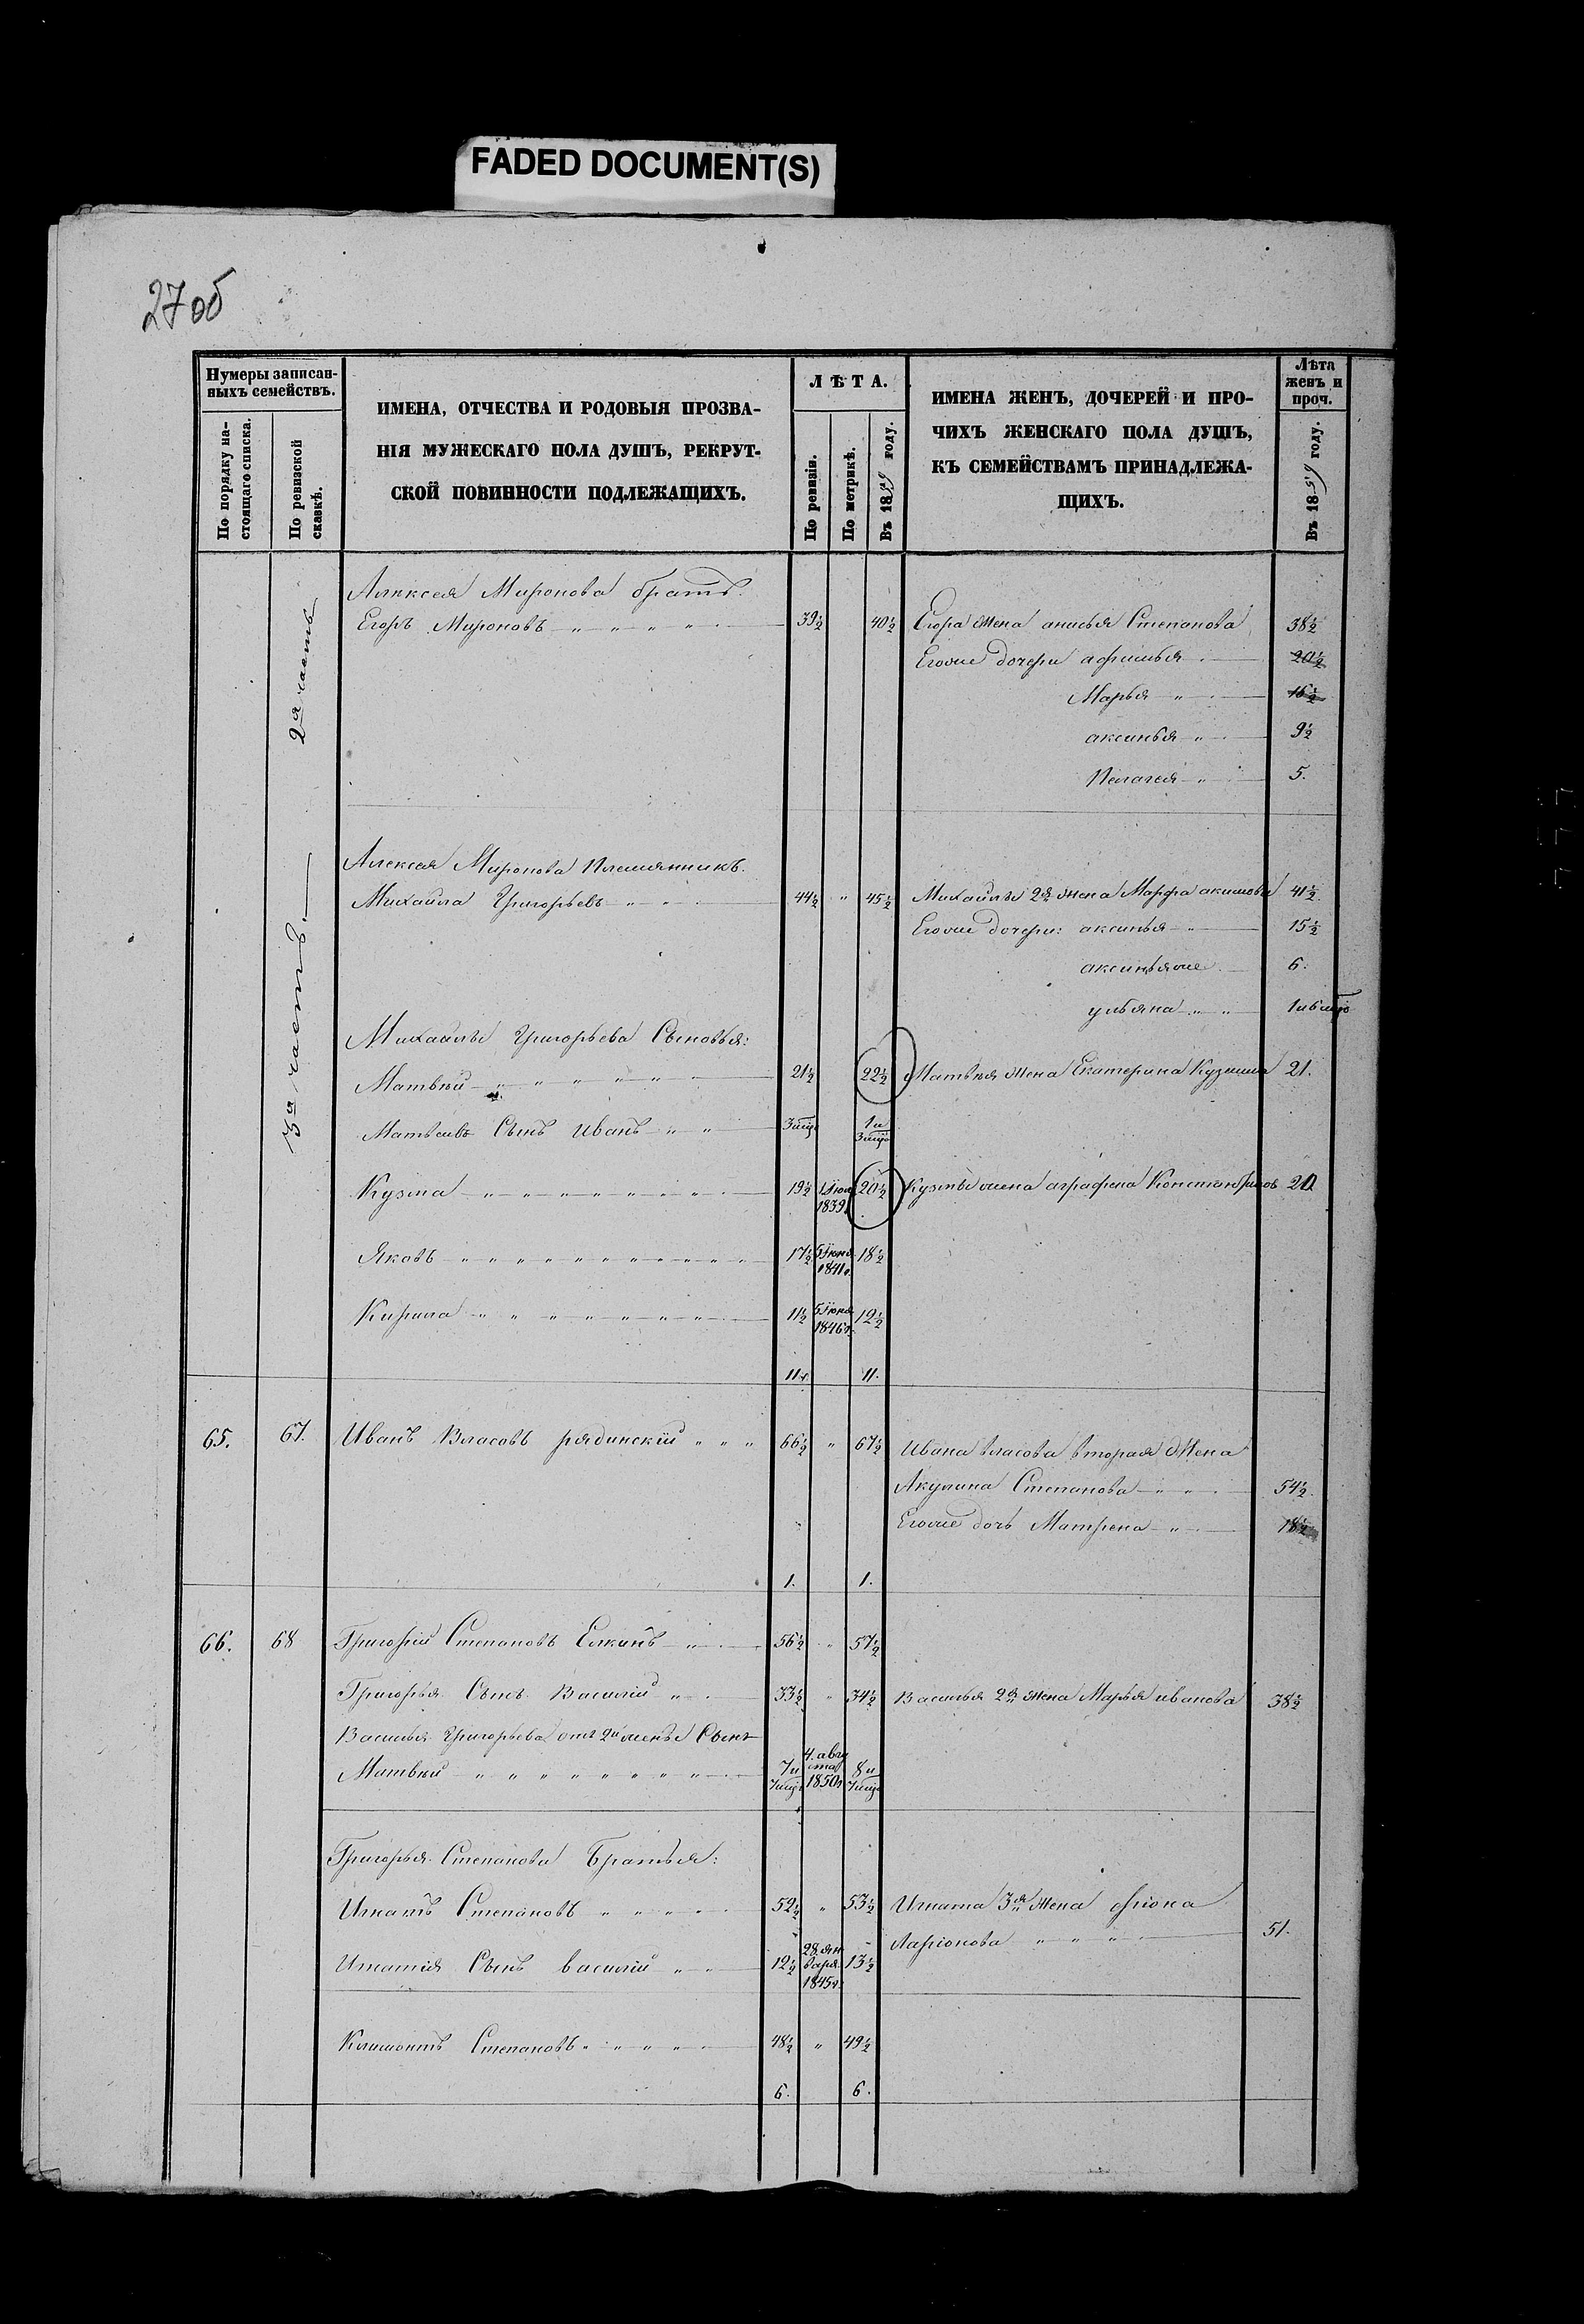 FADED DOCUMENT(S)
27 об
Нумеры записан-
ныхъ семействъ.
По порядку на-
стоящаго списка.
По ревизской
сказкѣ.
ИМЕНА, ОТЧЕСТВА И РОДОВЫЯ ПРОЗВА-
НІЯ МУЖЕСКАГО ПОЛА ДУШЪ, РЕКРУТ-
СКОЙ ПОВИННОСТИ ПОДЛЕЖАЩИХЪ.
ЛѢТА.
По ревизіи.
По метрикѣ.
Въ 1859 году.
ИМЕНА ЖЕНЪ, ДОЧЕРЕЙ И ПРО-
ЧИХЪ ЖЕНСКАГО ПОЛА ДУШЪ,
КЪ СЕМЕЙСТВАМЪ ПРИНАДЛЕЖА-
ЩИХЪ.
Лѣта
женъ и
проч.
Въ 1859 году.
2я часть
Алексея Миронова братъ.
Егоръ Мироновъ 39½ 40½ Егора жена анисья Степанова 38½
Егоже дочери афимья 20½
Марья 16½
аксинья 9½
Пелагея 5.
3я часть.
Алексея Миронова Племянникъ.
Михайла Григорьевъ 44½ " 45½ Михайлы 2я жена Марфа акимова 41½
Егоже дочери: аксинья 15½
аксинья же 6.
ульяна 1 и 6 мцо
Михайлы Григорьева Сыновья:
Матвѣй 21½ 22½ Матвѣя жена Екатерина Кузмина 21.
Матвеивъ Сынъ Иванъ 3 мцо 1 и 3 мцо
Кузма 19½ 1839 20½ Кузмы жена аграфена 20
Яковъ 17½ 5 Июня 1841г. 18½
Кирила 11½ 5 Июня 1846г. 12½
11. 11.
65. 67. Иванъ Власовъ рядинскій 66½ " 67½ Ивана власова вторая Жена
Акулина Степанова 54½
Егоже дочь Матрена 18½
1. 1.
66. 68 Григорій Степановъ Елкинъ 56½ " 57½
Григорья Сынъ Василій 33½ " 34½ Василья 2я жена Марья иванова 38½
Василья Григорьева отъ 2й жены Сынъ
Матвѣй 7 и 7 мцо 4. августа 1850г 8 и 7 мцо
Григорья Степанова Братья:
Игнатъ Степановъ 52½ " 53½ Игната 3я жена
Ларіонова 51.
Игнатія Сынъ василій 12½ 28 января 1845г. 13½
Климонтъ Степановъ 48½ " 49½
6. 6.